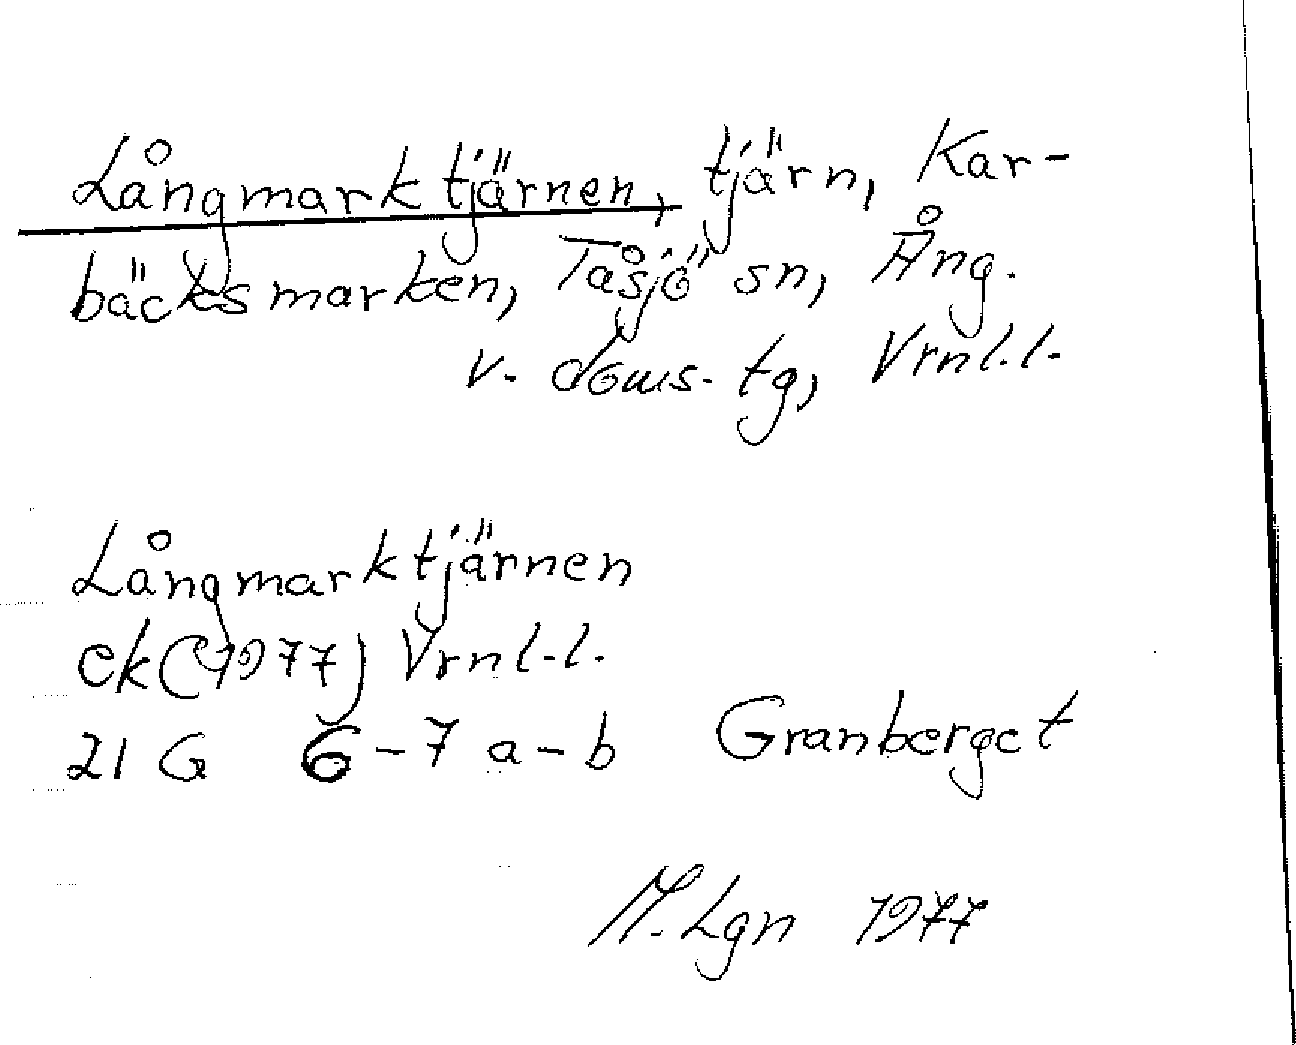 Långmarktjärnen, tjärn, Kar-
bäcksmarken, Tåsjö sn, Ång.
v. doms. tg, Vrnl.l.
Långmarktjärnen
ek (1977) Vrnl.l.
21 G 6-7 a-b Granberget
M. Lgn 1977